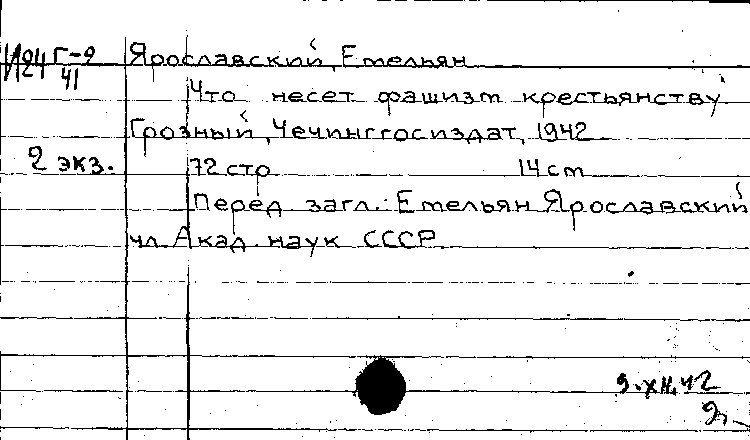 И24 Г-9
41
Ярославский, Емельян
Что несет фашизм крестьянству.
Грозный, Чечинггосиздат, 1942
2 экз.
72 стр. 14 см
Перед загл.: Емельян Ярославский
чл. Акад. наук СССР.
9.XII.42